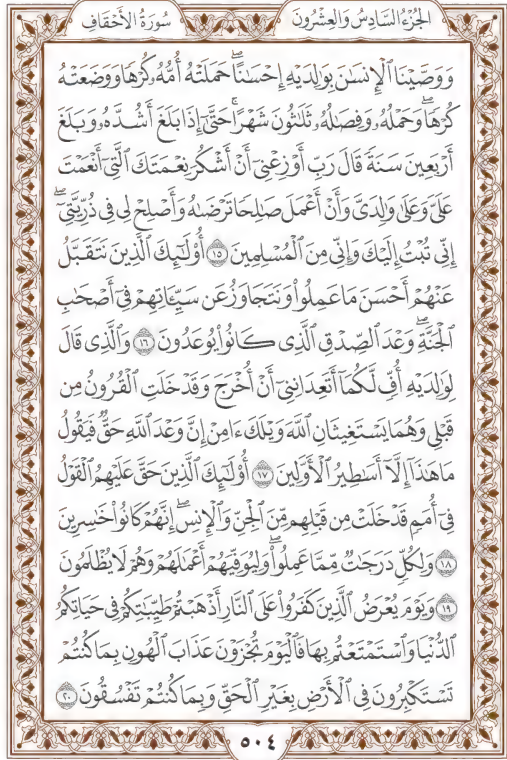 الجُزْءُ السَّادِسُ وَالعِشْرُونَ
سُورَةُ الأَحْقَافِ
وَوَصَّيْنَا ٱلْإِنسَٰنَ بِوَٰلِدَيْهِ إِحْسَٰنًا ۖ حَمَلَتْهُ أُمُّهُۥ كُرْهًا وَوَضَعَتْهُ
كُرْهًا ۖ وَحَمْلُهُۥ وَفِصَٰلُهُۥ ثَلَٰثُونَ شَهْرًا ۚ حَتَّىٰٓ إِذَا بَلَغَ أَشُدَّهُۥ وَبَلَغَ
أَرْبَعِينَ سَنَةً قَالَ رَبِّ أَوْزِعْنِىٓ أَنْ أَشْكُرَ نِعْمَتَكَ ٱلَّتِىٓ أَنْعَمْتَ
عَلَىَّ وَعَلَىٰ وَٰلِدَىَّ وَأَنْ أَعْمَلَ صَٰلِحًا تَرْضَىٰهُ وَأَصْلِحْ لِى فِى ذُرِّيَّتِىٓ ۖ
إِنِّى تُبْتُ إِلَيْكَ وَإِنِّى مِنَ ٱلْمُسْلِمِينَ ١٥ أُو۟لَٰٓئِكَ ٱلَّذِينَ نَتَقَبَّلُ
عَنْهُمْ أَحْسَنَ مَا عَمِلُوا۟ وَنَتَجَاوَزُ عَن سَيِّـَٔاتِهِمْ فِىٓ أَصْحَٰبِ
ٱلْجَنَّةِ ۖ وَعْدَ ٱلصِّدْقِ ٱلَّذِى كَانُوا۟ يُوعَدُونَ ١٦ وَٱلَّذِى قَالَ
لِوَٰلِدَيْهِ أُفٍّ لَّكُمَآ أَتَعِدَانِنِىٓ أَنْ أُخْرَجَ وَقَدْ خَلَتِ ٱلْقُرُونُ مِن
قَبْلِى وَهُمَا يَسْتَغِيثَانِ ٱللَّهَ وَيْلَكَ ءَامِنْ إِنَّ وَعْدَ ٱللَّهِ حَقٌّ فَيَقُولُ
مَا هَٰذَآ إِلَّآ أَسَٰطِيرُ ٱلْأَوَّلِينَ ١٧ أُو۟لَٰٓئِكَ ٱلَّذِينَ حَقَّ عَلَيْهِمُ ٱلْقَوْلُ
فِىٓ أُمَمٍ قَدْ خَلَتْ مِن قَبْلِهِم مِّنَ ٱلْجِنِّ وَٱلْإِنسِ ۖ إِنَّهُمْ كَانُوا۟ خَٰسِرِينَ
١٨ وَلِكُلٍّ دَرَجَٰتٌ مِّمَّا عَمِلُوا۟ ۖ وَلِيُوَفِّيَهُمْ أَعْمَٰلَهُمْ وَهُمْ لَا يُظْلَمُونَ
١٩ وَيَوْمَ يُعْرَضُ ٱلَّذِينَ كَفَرُوا۟ عَلَى ٱلنَّارِ أَذْهَبْتُمْ طَيِّبَٰتِكُمْ فِى حَيَاتِكُمُ
ٱلدُّنْيَا وَٱسْتَمْتَعْتُم بِهَا فَٱلْيَوْمَ تُجْزَوْنَ عَذَابَ ٱلْهُونِ بِمَا كُنتُمْ
تَسْتَكْبِرُونَ فِى ٱلْأَرْضِ بِغَيْرِ ٱلْحَقِّ وَبِمَا كُنتُمْ تَفْسُقُونَ ٢٠
٥٠٤